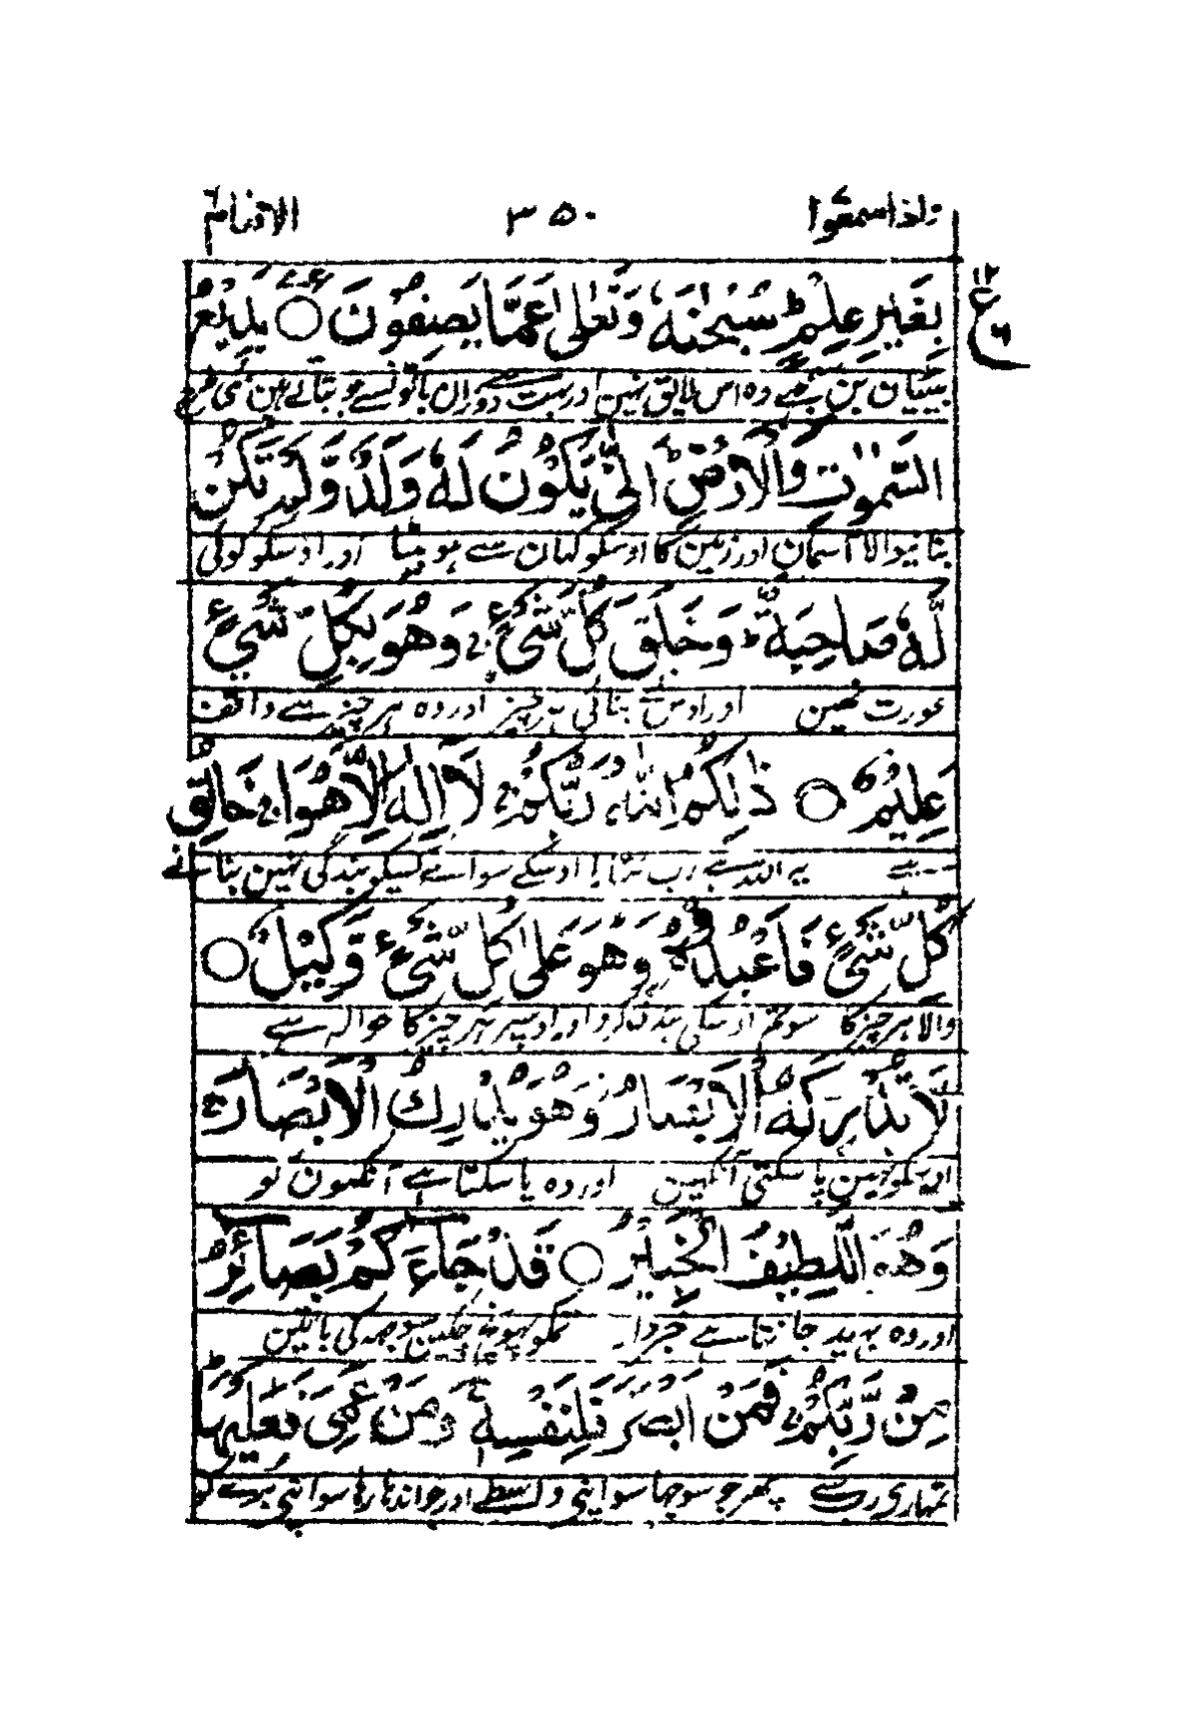 واذا سمعوا ۳۵۰ الانعام
۱۲
ع
۶
بِغَيْرِ عِلْمٍ ط سُبْحٰنَهٗ وَتَعٰلٰى عَمَّا يَصِفُوْنَ ○ بَدِيْعُ
بیٹیان بن سمجھے وہ اس لایق نہین اور بہت دور ان باتونسے جو بتاتے ہین نئی طرح
السَّمٰوٰتِ وَالْاَرْضِ ط اَنّٰى يَكُوْنُ لَهٗ وَلَدٌ وَّلَمْ تَكُنْ
بنانیوالا آسمان اور زمین کا اوسکو کہان سے ہو بیٹا اور اوسکو کوئی
لَّهٗ صَاحِبَةٌ ط وَخَلَقَ كُلَّ شَىْءٍ ج وَهُوَ بِكُلِّ شَىْءٍ
عورت نہین اور اوس نے بنائی ہر چیز اور وہ ہر چیز سے واقف
عَلِيْمٌ ○ ذٰلِكُمُ اللّٰهُ رَبُّكُمْ ج لَآ اِلٰهَ اِلَّا هُوَ ج خَالِقُ
ہے یہ اللہ ہے رب تمہارا اوسکے سوائے کسیکو بندگی نہین بنانے
كُلِّ شَىْءٍ فَاعْبُدُوْهُ ج وَهُوَ عَلٰى كُلِّ شَىْءٍ وَّكِيْلٌ ○
والا ہر چیز کا سو تم اوسکی بندگی کرو اور اوسپر ہر چیز کا حوالہ ہے
لَا تُدْرِكُهُ الْاَبْصَارُ ز وَهُوَ يُدْرِكُ الْاَبْصَارَ ج
اوسکو نہین پا سکتی آنکھین اور وہ پا سکتا ہے آنکھون کو
وَهُوَ اللَّطِيْفُ الْخَبِيْرُ ○ قَدْ جَآءَكُمْ بَصَآئِرُ
اور وہ بہید جانتا ہے خبردار تمکو پہونچ چکین سوجھ کی باتین
مِنْ رَّبِّكُمْ ج فَمَنْ اَبْصَرَ فَلِنَفْسِهٖ ج وَمَنْ عَمِىَ فَعَلَيْهَا ط
تمہاری رب سے پھر جو سوجھا سو اپنی واسطے اور جو اندھا رہا سو اپنی برے کو